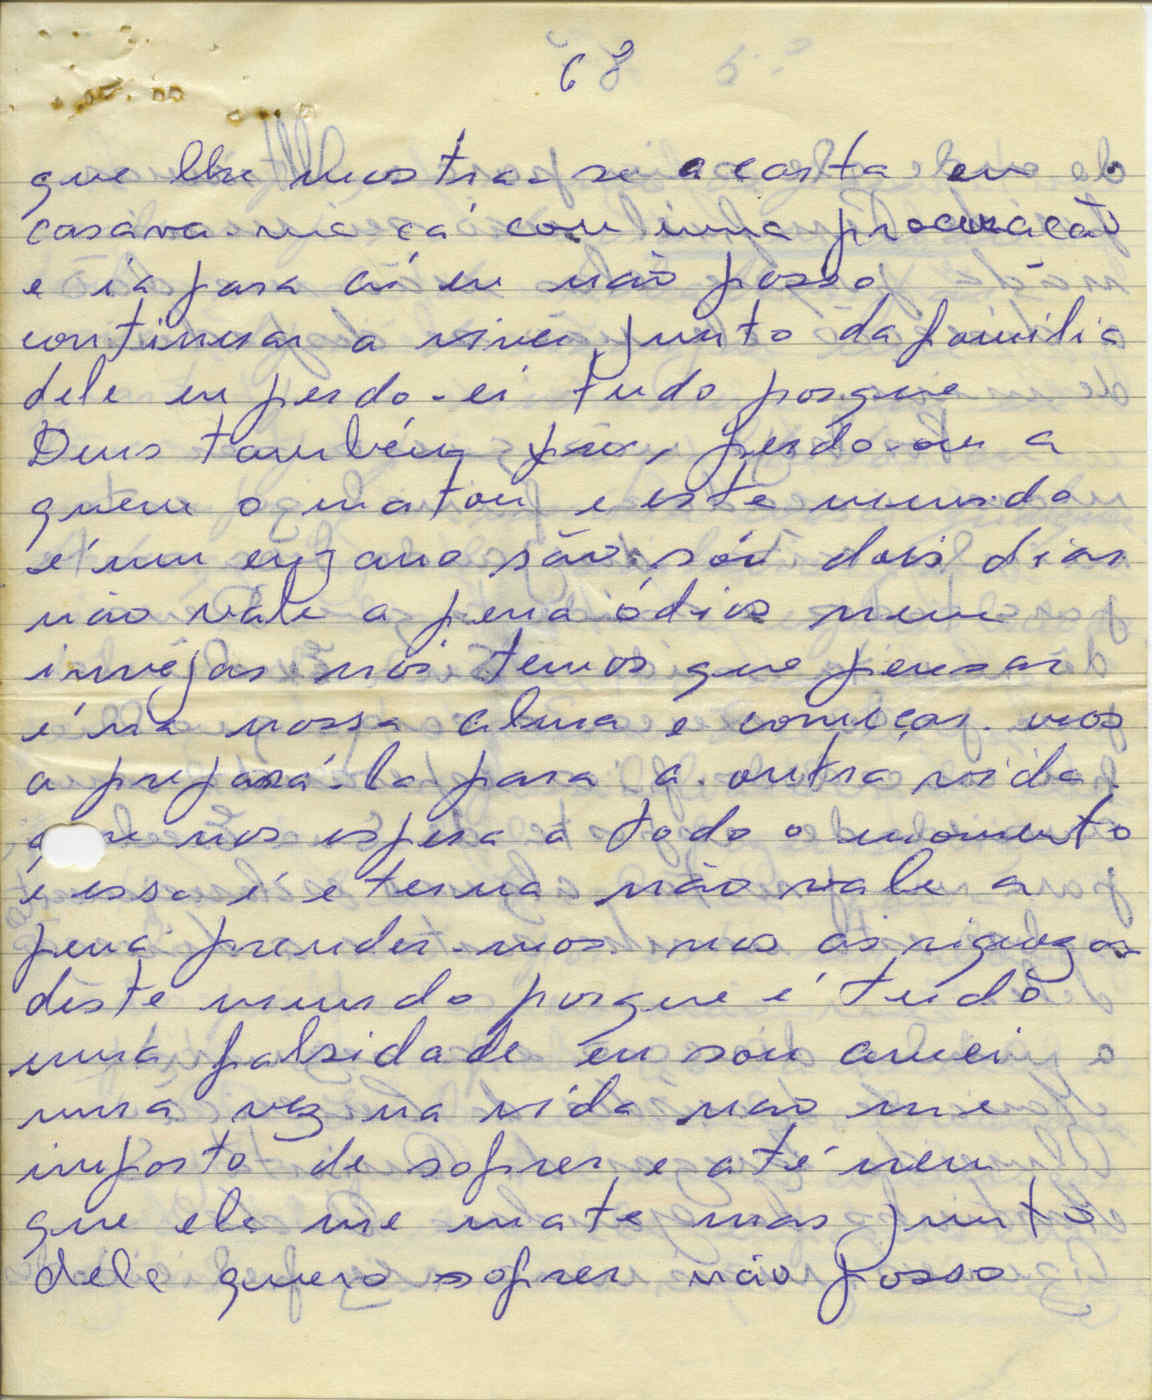 68
que lhe mostra-se a carta eu
casava-me cá com uma procuracão
e ia para aí eu não posso
continuar a viver junto da familia
dele eu perdo-ei tudo porque
Deus também perdo-ou a
quem o matou e este mundo
é um engano são só dois dias
não vale a pena ódios nem
invejas nós temos que pensar
é na nossa alma e começar-mos
a prepará-la para a outra vida
que nos espera a todo o momento
e essa é eterna não vale a
pena prender-mos nos as riquezas
deste mundo porque é tudo
uma falsidade eu sou amei
uma vez na vida não me
importo de sofrer e até nem
que ele me mate mas junto
dele quero sofrer não posso